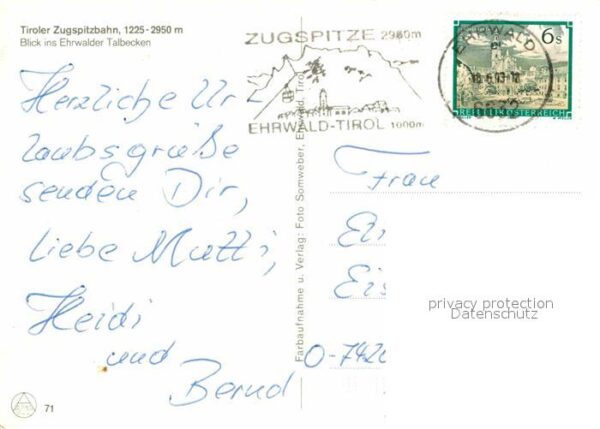 Tiroler Zugspitzbahn, 1225-2950 m
Blick ins Ehrwalder Talbecken
ZUGSPITZE 2950m
EHRWALD-TIROL 1000m
EHRWALD
6632
6 S
REPUBLIK ÖSTERREICH
Herzliche Ur-
laubsgrüße
senden Dir,
liebe Mutti,
Heidi
und
Bernd
Farbaufnahme u. Verlag: Foto Somweber, Ehrwald, Tirol
Frau
Ei
Eis
O-742
privacy protection
Datenschutz
71